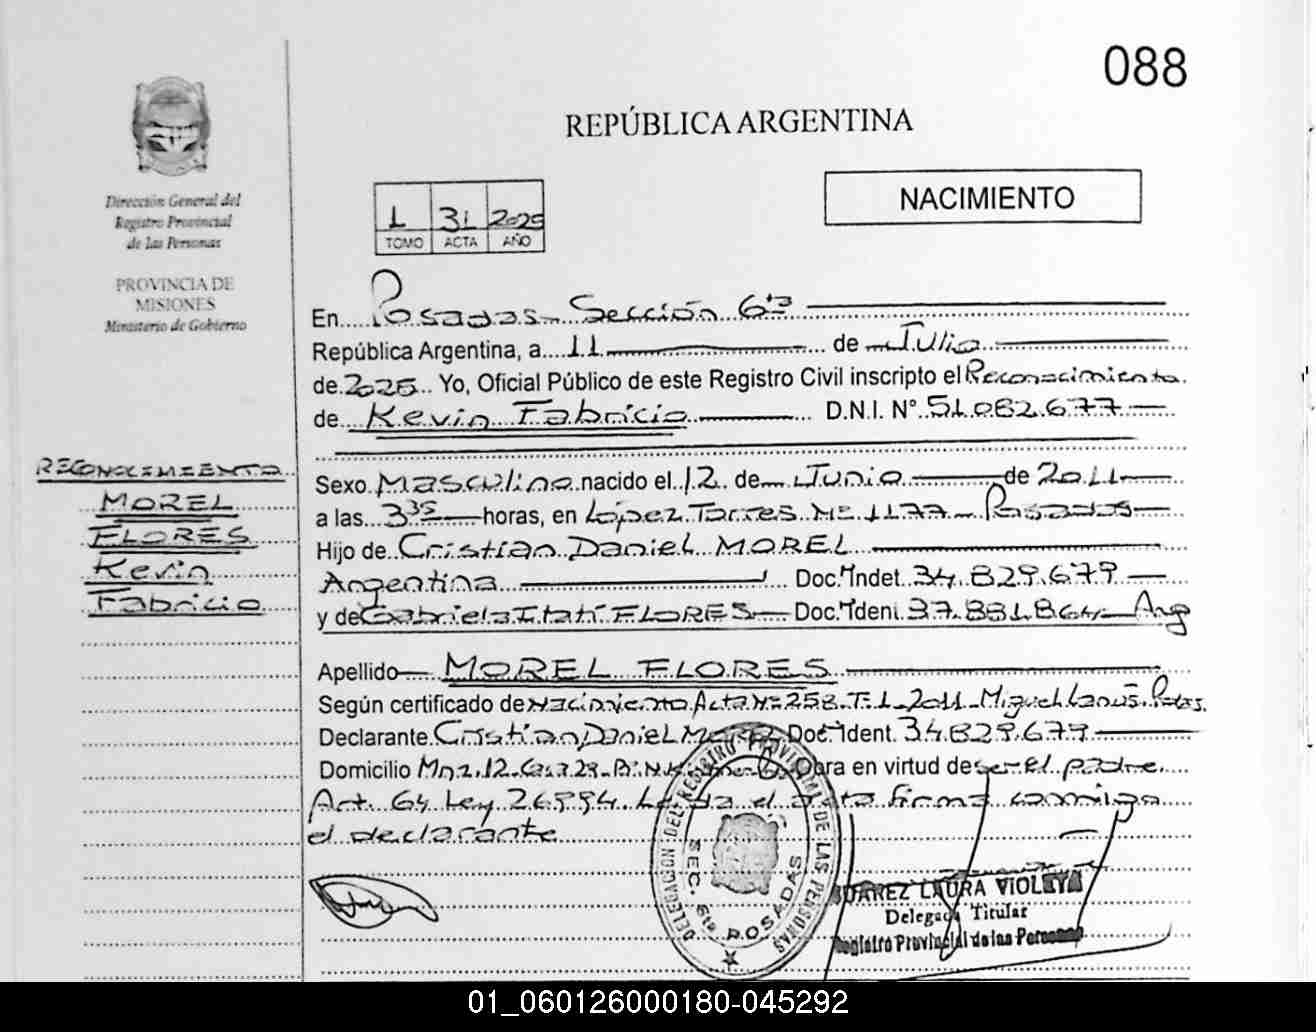 088
REPÚBLICA ARGENTINA
Dirección General del
Registro Provincial
de las Personas
PROVINCIA DE
MISIONES
Ministerio de Gobierno
1 31 2025
TOMO ACTA AÑO
NACIMIENTO
En Posadas - Sección 6ta
República Argentina, a 11 de Julio
de 2025 Yo, Oficial Público de este Registro Civil inscripto el Reconocimiento
de Kevin Fabricio D.N.I. N° 51.082.677
RECONOCIMIENTO
MOREL
FLORES
Kevin
Fabricio
Sexo Masculino nacido el 12 de Junio de 2011
a las 3 35 horas, en López Torres Nº 1177 - Posadas
Hijo de Cristian Daniel MOREL
Argentina Doc. Indet. 34.829.679
y de Gabriela Itatí FLORES Doc. Ident. 37.881.864 Arg
Apellido MOREL FLORES
Según certificado de nacimiento Acta Nº 258 T-1-2011 - Miguel Lanús. Pdas.
Declarante Cristian Daniel Morel Doc. Ident. 34.829.679
Domicilio Mnz. 12 Obra en virtud de ser el padre.
Art. 64 Ley 26994. Leída el acta firma conmigo
el declarante
DELEGACION DEL REGISTRO PROVINCIAL DE LAS PERSONAS
SEC. 6ta POSADAS
LAURA VIOLETA
Delegada Titular
Registro Provincial de las Personas
01_060126000180-045292